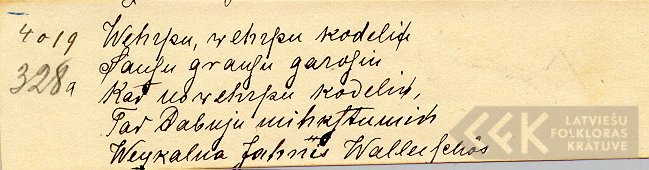 4019 Wehrpu, wehrpu kodeliņ
328a Saușu graușu garoșiņ
Kad nowehrpu kodeliņ,
Tad Dabuju mihkstumiņ
Weykalna Jahnis Walleschôs
LATVIEŠU
FOLKLORAS
KRĀTUVE